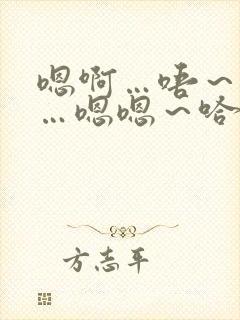 嗯啊…唔~
…嗯嗯~哈
方志平